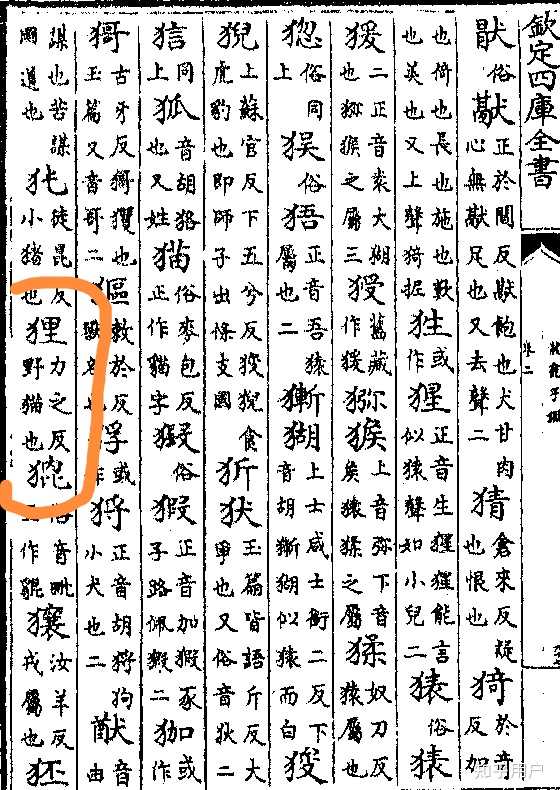 欽定四庫全書
猒俗猒正於閻反猒飽也犬甘肉心無猒足也又去聲二猜倉來反疑也恨也猗於奇反加
也倚也長也施也歎也美也又上聲猗狔狌或作猩正音生猩猩能言似猿聲如小兒二猿俗
猨二正音袁大猴也猕猴之屬三舊藏作猨猕猴上音弥下音矦猿猱之屬猱奴刀反猿屬也
俗同上俗狧正音吾猿屬也二獑猢上士咸士銜二反下音胡獑猢似猿而白狻
猊上蘇官反下五兮反狻猊食虎豹也即師子出條支國狄玉篇皆語斤反犬甲也又俗音狄二
狺同上狐音胡狐狢也又姓猫俗麥包反正作貓字俗猳正音加猳豕子路佩猳二或作
古牙反玉篇又音哥二獲也貙敷於反獸名也或作正音胡狗小犬也二猷音由
謀也苦謀圖道也㹠徒昆反小猪也狸力之反野貓也俗音毗正作貔獽汝羊反戎屬也狉
知乎用户